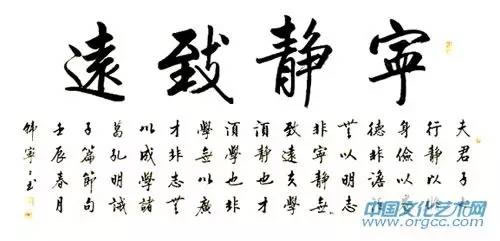 寧静致遠
夫君子之
行静以
身儉以養
德非澹泊
無以明志
非寧静無
致遠夫學
須静也才
須學也非
學無以廣
才非志無
以成學諸
葛孔明誡
子篇節句
壬辰春月
中国文化艺术网
www.orgcc.com